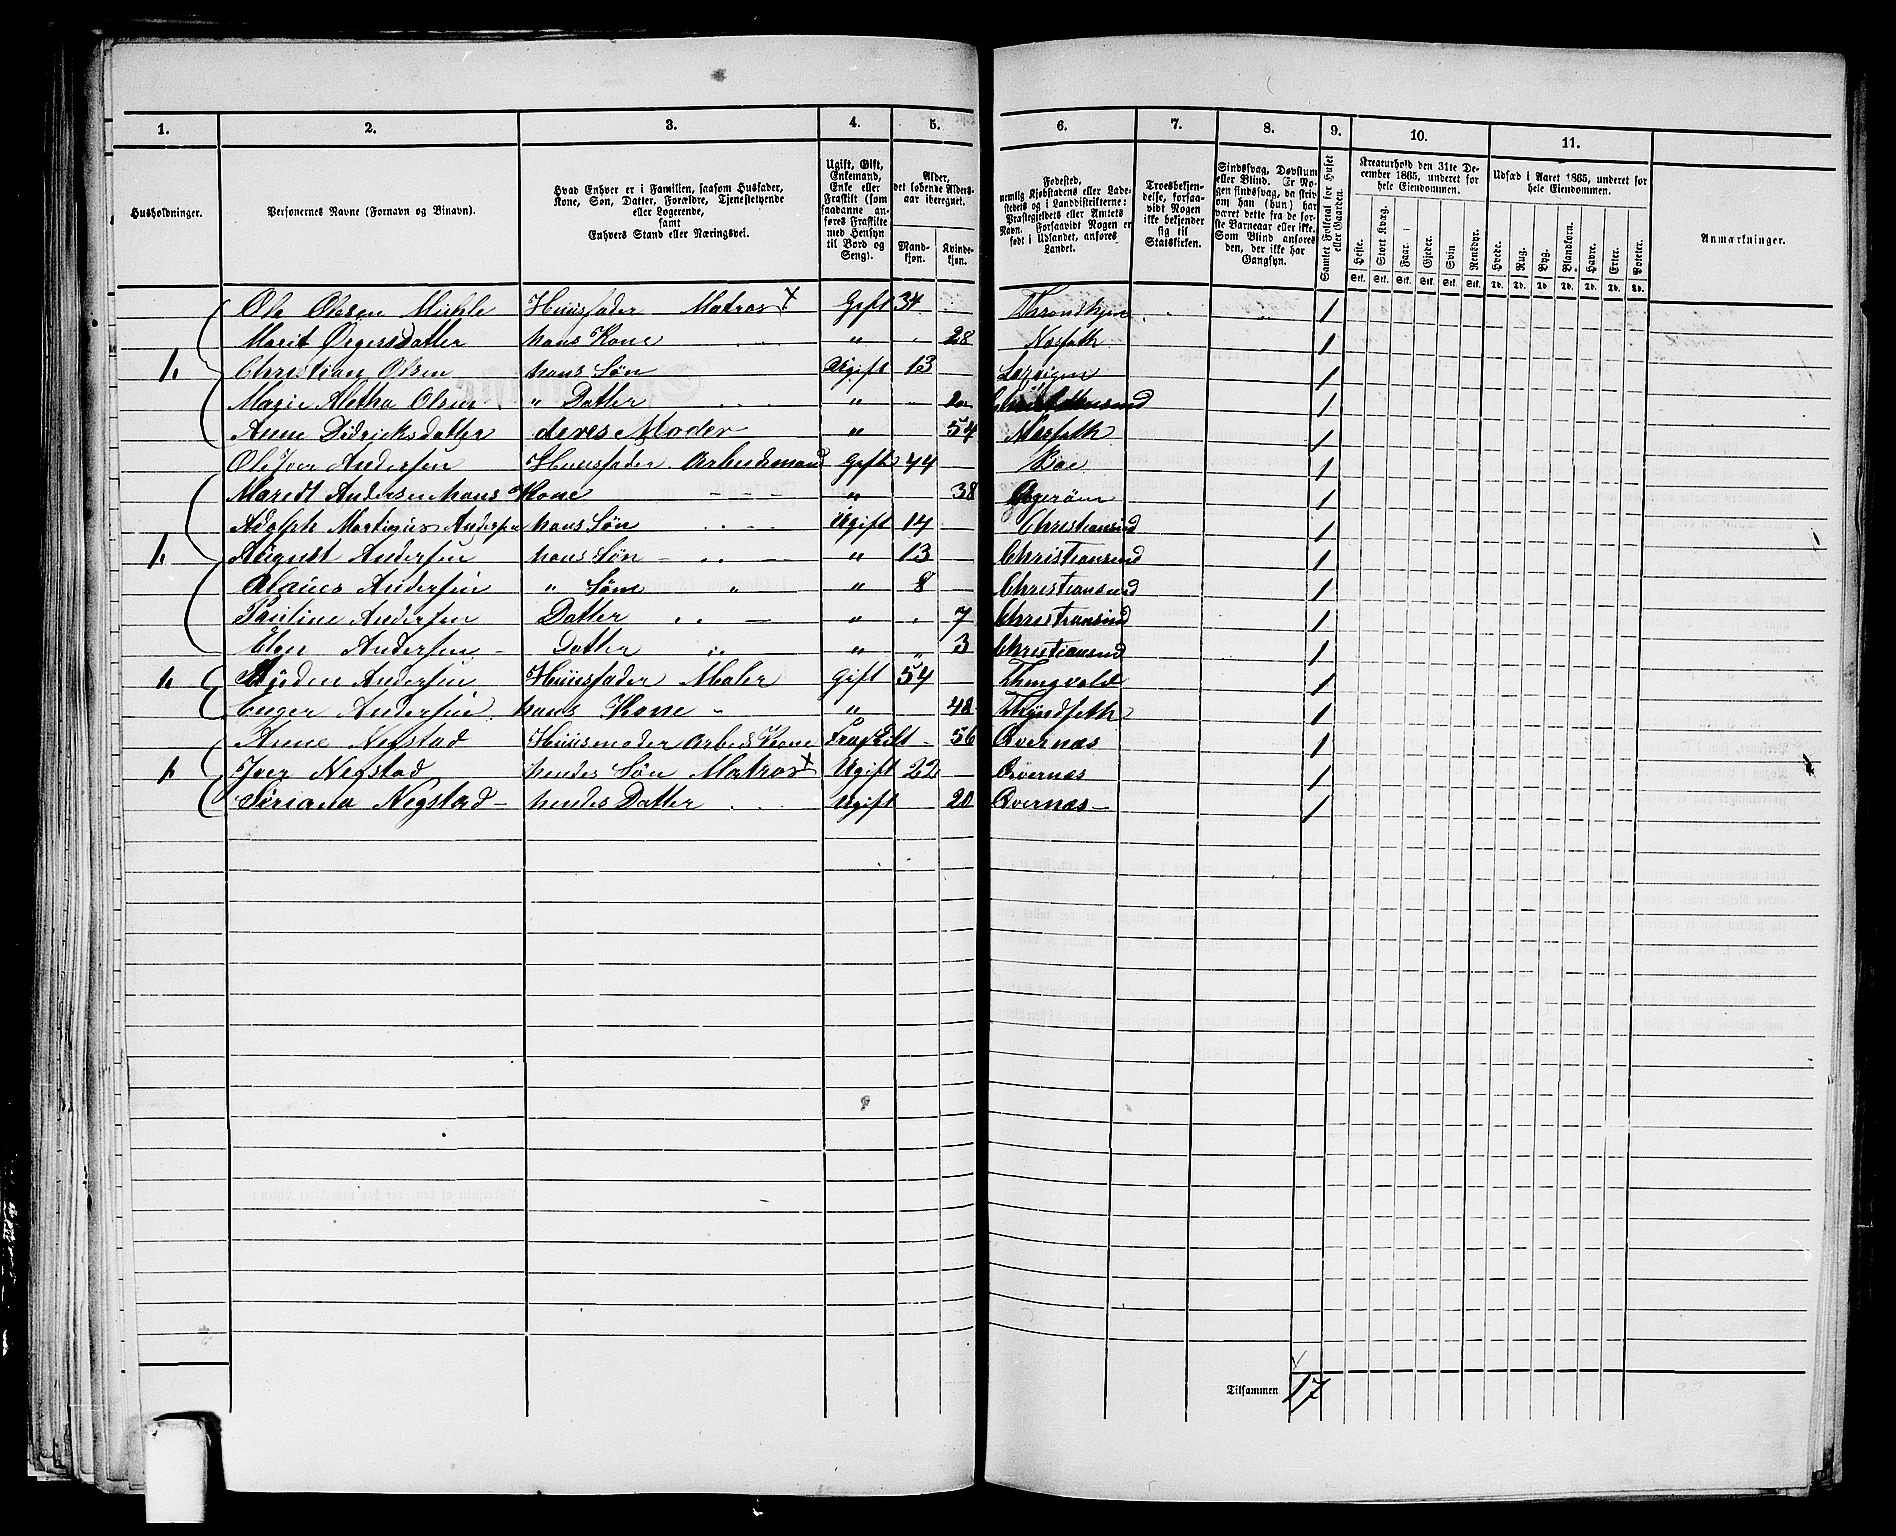 1. 2. 3. 4. 5. 6. 7. 8. 9. 10. 11.
Husholdninger.
Personernes Navne (Fornavn og Binavn).
Hvad Enhver er i Familien, saasom Husfader, Kone, Søn, Datter, Forældre, Tjenestetyende eller Logerende, samt Enhvers Stand eller Næringsvei.
Ugift, Gift, Enkemand, Enke eller Fraskilt (som saadanne anføres Fraskilte med Hensyn til Bord og Seng).
Alder, det løbende Alders-aar iberegnet.
Mand-kjøn. Kvinde-kjøn.
Fødested, nemlig Kjøbstadens eller Ladestedets og i Landdistrikterne: Præstegjeldets eller Amtets Navn. Forsaavidt Nogen er født i Udlandet, anføres Landet.
Troesbekjendelse, forsaavidt Nogen ikke bekjender sig til Statskirken.
Sindssvag, Døvstum eller Blind. Er Nogen sindssvag, da skrives om han (hun) har været dette fra de første Barneaar eller ikke. Som Blind anføres den, der ikke har Gangsyn.
Samlet Folketal for Huset eller Gaarden.
Kreaturhold den 31te December 1865, underet for hele Eiendommen.
Heste. Stort Kvæg. Faar. Gjeder. Svin Rensdyr.
Stk. Stk. Stk. Stk. Stk. Stk.
Udsæd i Aaret 1865, underet for hele Eiendommen.
Hvede. Rug. Byg. Blandkorn. Havre. Erter. Poteter.
Td. Td. Td. Td. Td. Td. Td.
Anmærkninger.
Ole Olesen Mickle Huusfader Matros x Gift 34 Throndhjem 1
Marit Ørgersdatter hans Kone " 28 Nasfath 1
1. Christian Olsen hans Søn Ugift 13 1
Magie Aletha Olsen " Datter " Christiansund 1
Anne Didricksdatter deres Moder " 54 Nasfath 1
Ole Iver Andersen Huusfader Arbeidsmand Gift 44 Boe 1
Maredt Andersen hans Kone " 38 1
Adolph Martinus Andersen hans Søn Ugift 14 Christiansund 1
1. August Andersen hans Søn " 13 Christiansund 1
Andersen " Søn " " 8 Christiansund 1
Pauline Andersen Datter " 7 Christiansund 1
Elen Andersen Datter " " 3 Christiansund 1
1. Andersen Huusfader Maler Gift 54 Thingvold 1
Inger Andersen hans Kone " " 48 1
Anne Negstad Huusmoder Arbeds Kone Fraskilt 56 Qvernæs 1
1. Iver Negstad hendes Søn Matros x Ugift 22 Qvernæs 1
Siriana Negstad hendes Datter Ugift 20 Qvernæs 1
Tilsammen 17